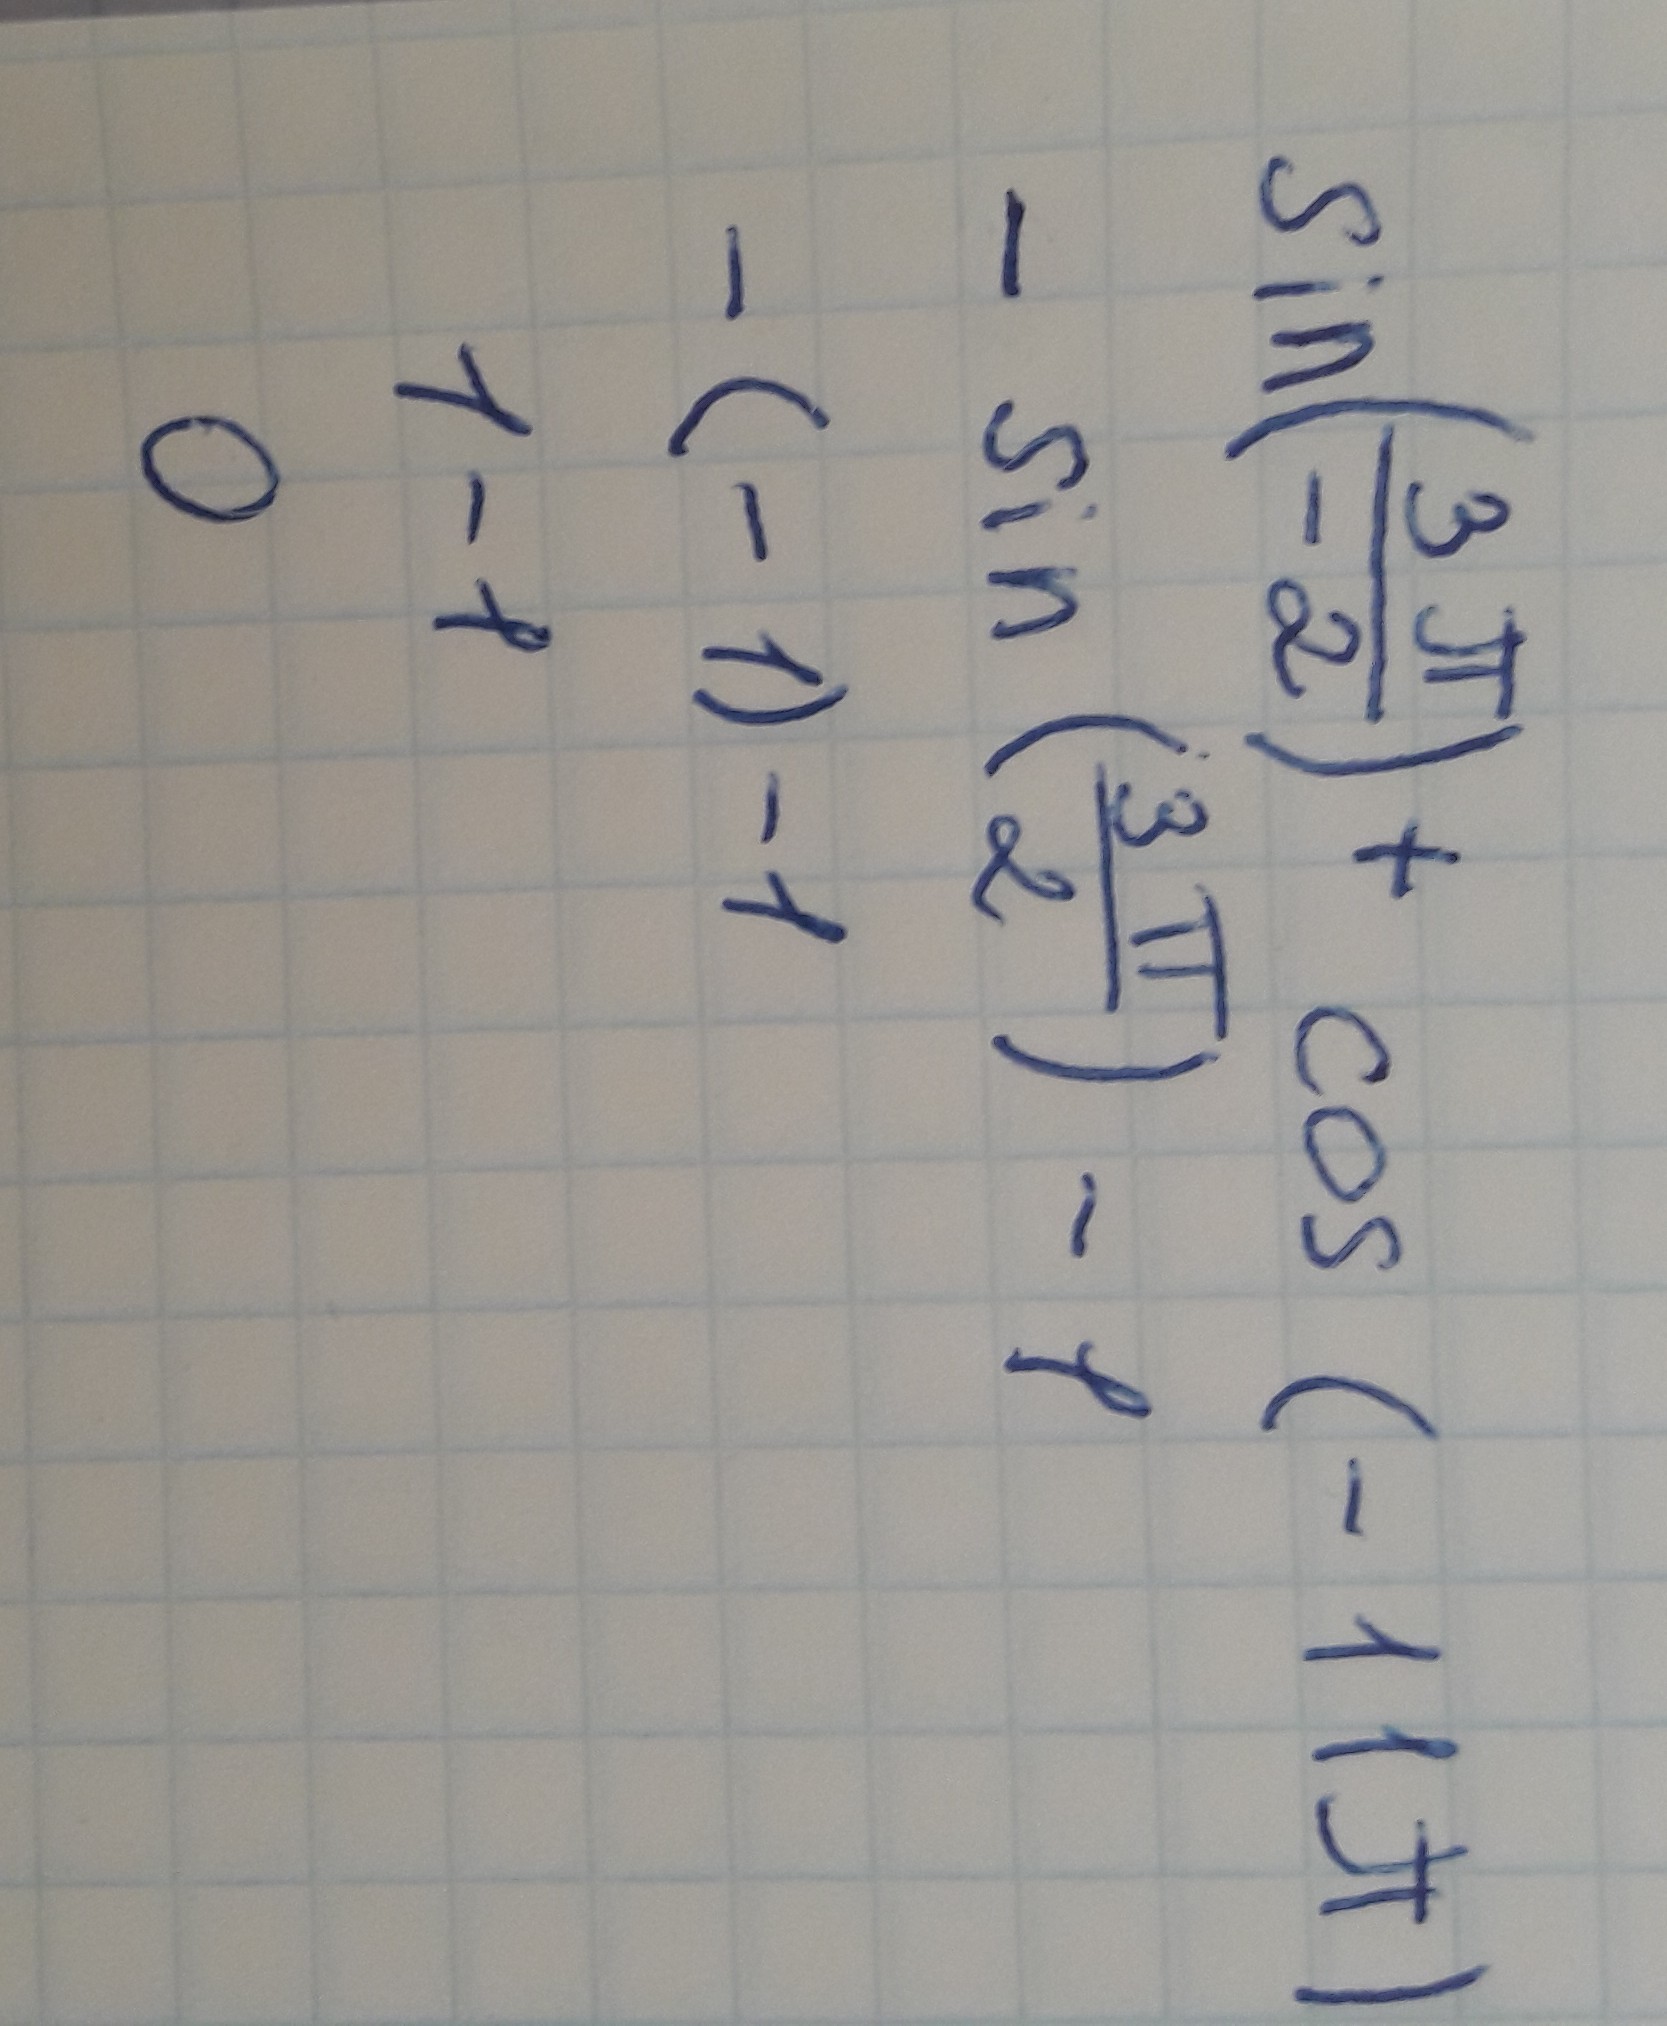 sin(3π/-2) + cos (-11π)
- sin (3π/2) - 1
- (-1) - 1
1 - 1
0